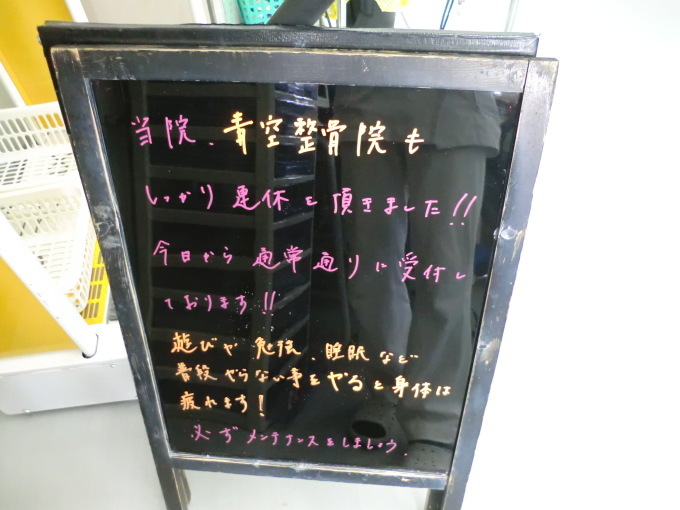 当院、青空整骨院も
しっかり連休を頂きました!!
今日から通常通りに受付し
ております!!
遊びや勉強、睡眠など
普段やらない事をやると身体は
疲れます!
必ずメンテナンスをしましょう。